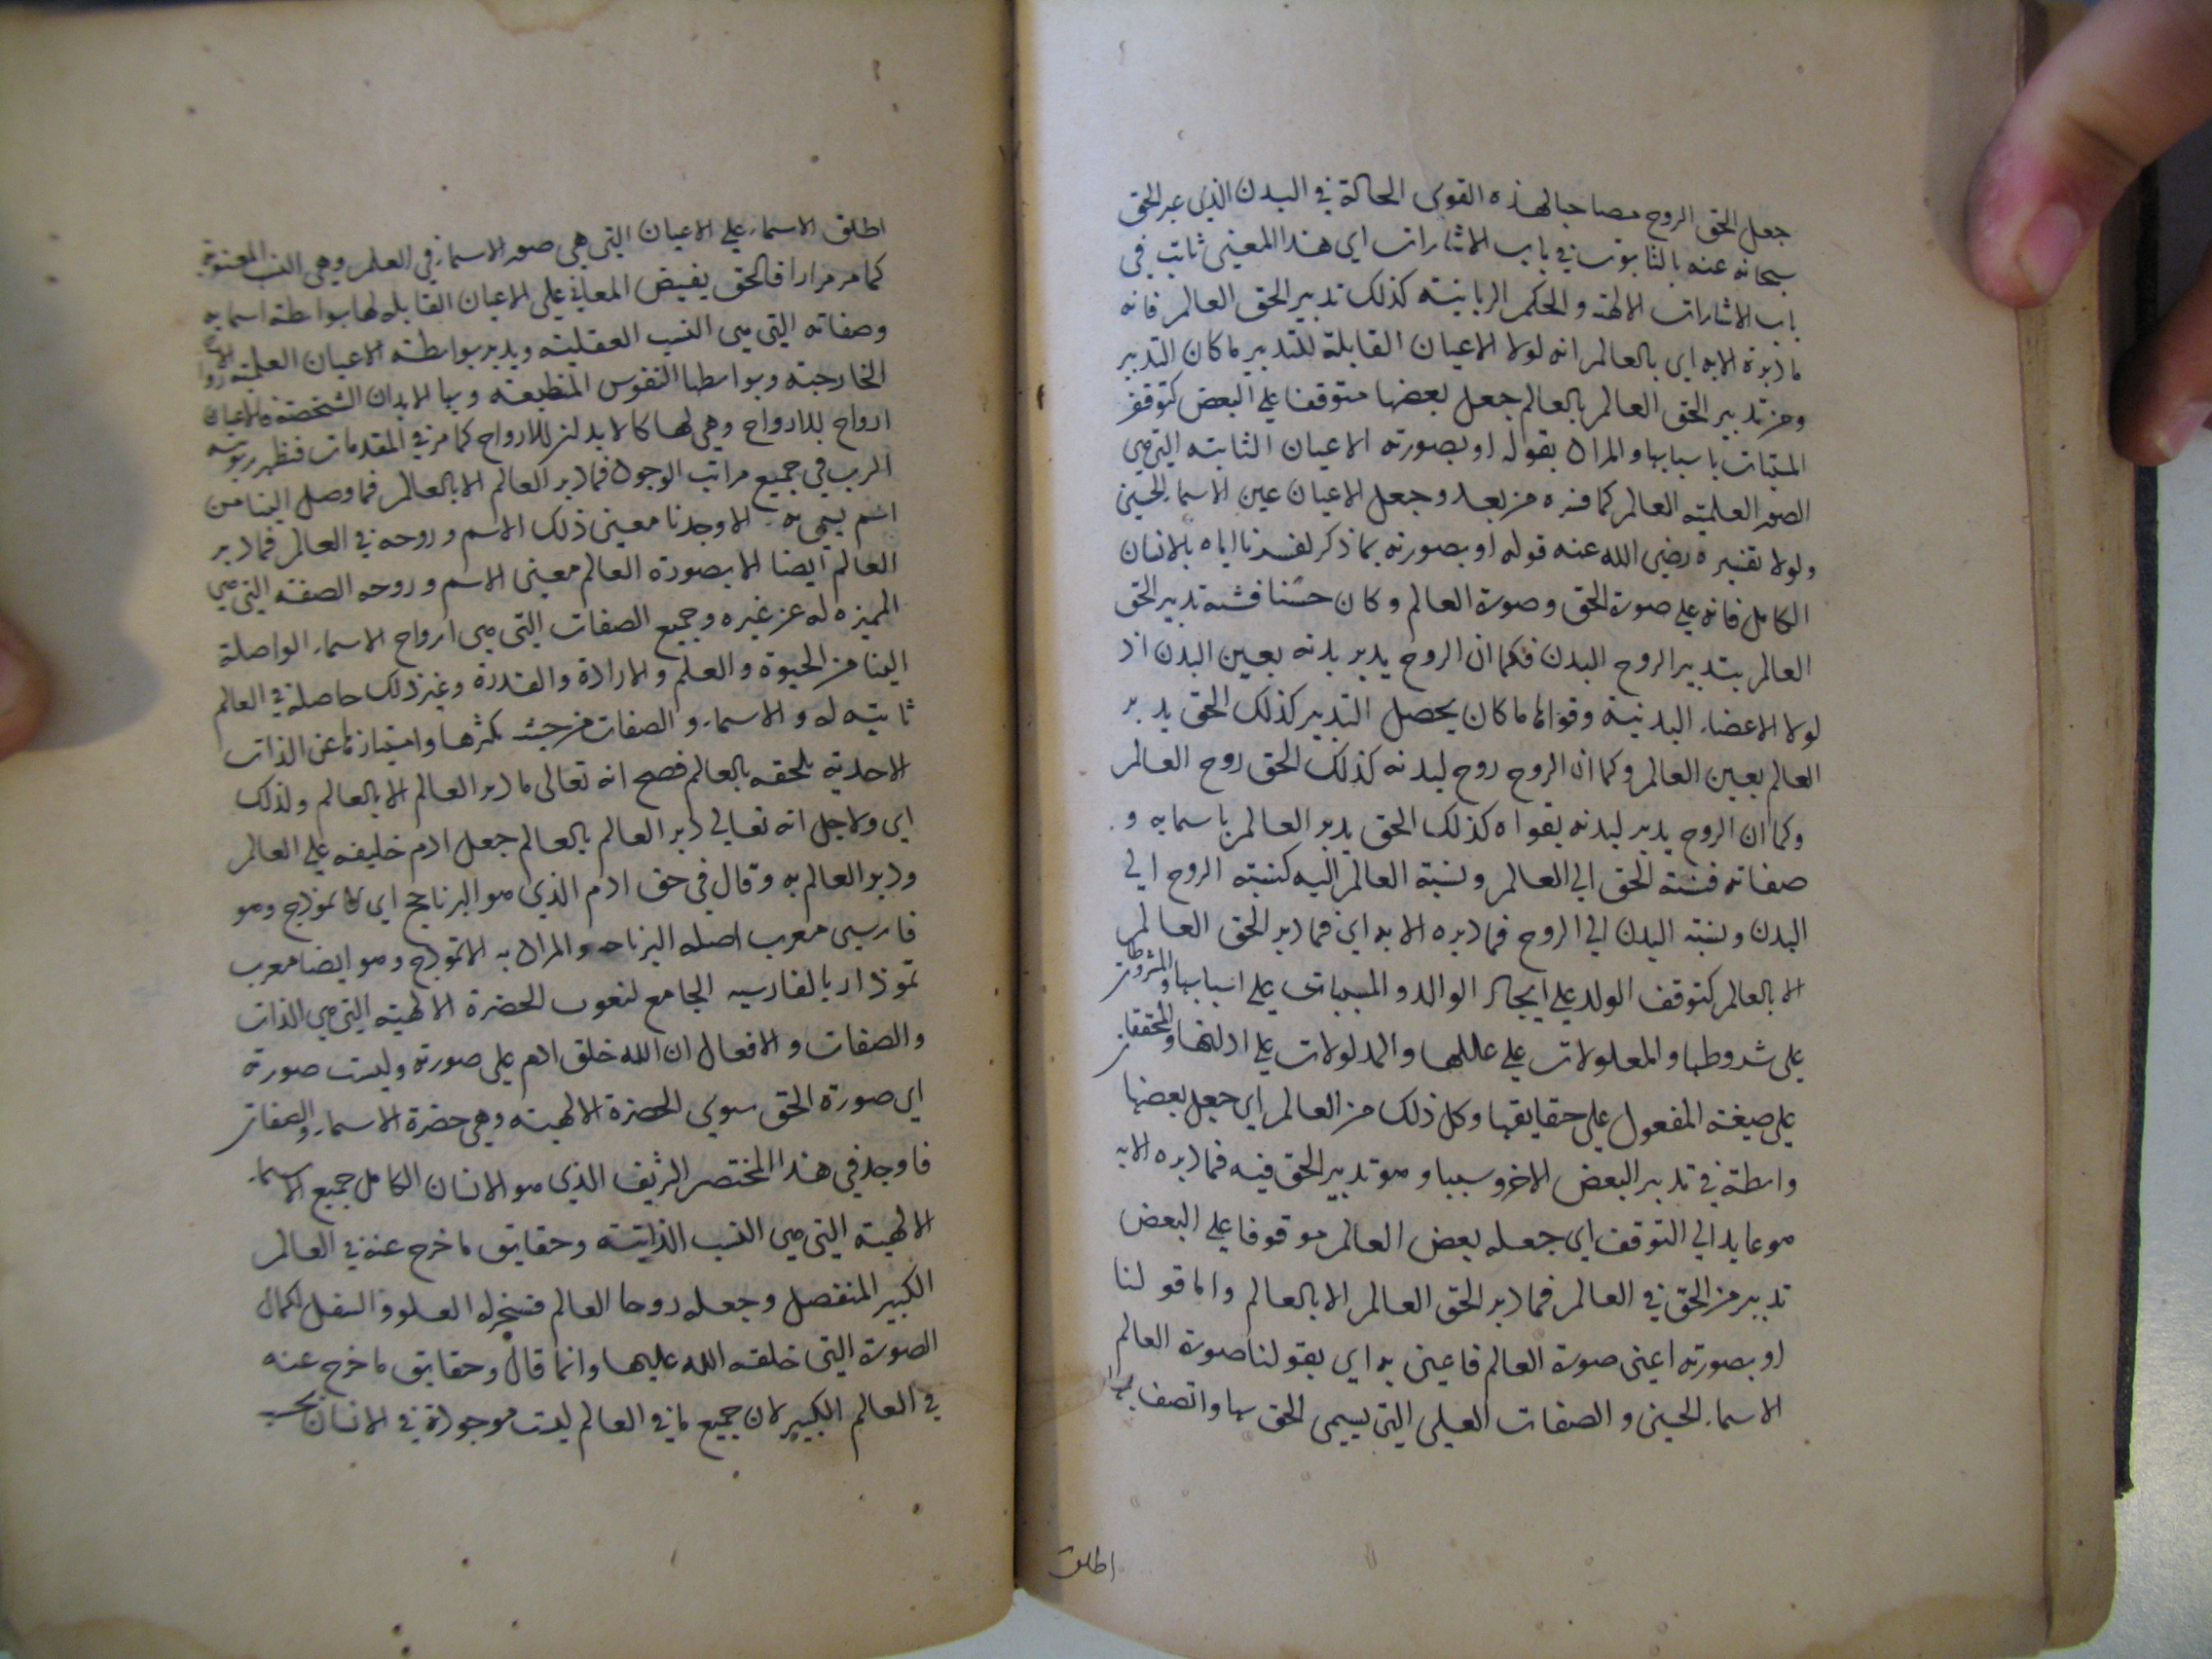 جعل الحق الروح مصاحبا لهذه القوى الحالة في البدن الذي عبر الحق
سبحانه عنه بالتابوت في باب الاشارات اي هذا المعنى ثابت في
باب الاشارات الالهية والحكم الربانية كذلك تدبير الحق العالم فانه
ما دبره الا به اي بالعالم انه لولا الاعيان القابلة للتدبير ما كان التدبير
ومن تدبير الحق العالم بالعالم جعل بعضها متوقفا على البعض كتوقف
المسببات باسبابها والمراد بقوله او بصورته الاعيان الثابته التي هي
الصور العلمية العالم كما فسره من بعد وجعل الاعيان عين الاسماء الحسنى
ولولا تفسيره رضي الله عنه قوله او بصورته بما ذكر لفسرنا اياه بالانسان
الكامل فانه على صورة الحق وصورة العالم وكان حسنا فشبه تدبير الحق
العالم بتدبير الروح البدن فكما ان الروح يدبر بدنه بعين البدن اذ
لولا الاعضاء البدنية وقواها ما كان يحصل التدبير كذلك الحق يدبر
العالم بعين العالم وكما ان الروح روح لبدنه كذلك الحق روح العالم
وكما ان الروح يدبر لبدنه بقواه كذلك الحق يدبر العالم باسمايه و
صفاته فنسبة الحق الى العالم ونسبة العالم اليه كنسبة الروح الى
البدن ونسبة البدن الى الروح فما دبره الا به اي فما دبر الحق العالم
الا بالعالم كتوقف الولد على ايجاد الوالد والمسببات على اسبابها والمشروطات
على شروطها والمعلولات على عللها والمدلولات على ادلتها والمحققات
على صيغة المفعول على حقايقها وكل ذلك من العالم اي جعل بعضها
واسطة في تدبير البعض الاخر وسببا وهو تدبير الحق فيه فما دبره الا به
هو عايد الى التوقف اي جعله بعض العالم موقوفا على البعض
تدبير من الحق في العالم فما دبر الحق العالم الا بالعالم واما قولنا
او بصورته اعني صورة العالم فاعني به اي بقولنا صورة العالم
الاسماء الحسنى والصفات العلى التي يسمى الحق بها واتصف بها
اطلق
اطلق الاسماء على الاعيان التي هي صور الاسماء في العلم وهي النسب المعنوية
كما مر مرارا فالحق يفيض المعاني على الاعيان القابله لها بواسطة اسمايه
وصفاته التي هي النسب العقلية ويدبر بواسطة الاعيان العلمية
الخارجية وبواسطها النفوس المنطبعة وبها الابدان الشخصية فالاعيان
ارواح للارواح وهي لها كالابدان للارواح كما مر في المقدمات فتظهر ربوبية
الرب في جميع مراتب الوجود فما دبر العالم الا بالعالم فما وصل الينا من
اسم يسمى به الا وجدنا معنى ذلك الاسم وروحه في العالم فما دبر
العالم ايضا الا بصورة العالم معنى الاسم وروحه الصفة التي هي
المميزه له عن غيره وجميع الصفات التي هي ارواح الاسماء الواصلة
الينا من الحيوة والعلم والارادة والقدرة وغير ذلك حاصلة في العالم
ثابتة له والاسماء والصفات من حيث تكثرها وامتيازها عن الذات
الاحدية ملحقه بالعالم فصح انه تعالى ما دبر العالم الا بالعالم ولذلك
اي ولاجل انه تعالى دبر العالم بالعالم جعل ادم خليفه على العالم
ودبر العالم به وقال في حق ادم الذي هو البرنامج اي الانموذج وهو
فارسى معرب اصله البرنامه والمراد به الانموذج وهو ايضا معرب
نموذار بالفارسيه الجامع لنعوت الحضرة الالهية التي هي الذات
والصفات والافعال ان الله خلق ادم على صورته وليست صورة
اي صورة الحق سوى الحضرة الالهية وهي حضرة الاسماء والصفات
فاوجد في هذا المختصر الشريف الذي هو الانسان الكامل جميع الاسماء
الالهية التي هي النسب الذاتية وحقايق ما خرج عنه في العالم
الكبير المنفصل وجعله روحا العالم فسخر له العلو والسفل لكمال
الصورة التي خلقه الله عليها وانما قال وحقايق ما خرج عنه
في العالم الكبير لان جميع ما في العالم ليست موجودة في الانسان بحسب